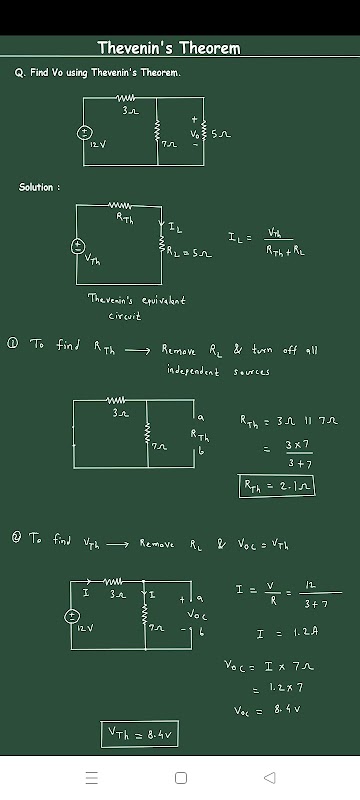 Thevenin's Theorem
Q. Find Vo using Thevenin's Theorem.
3Ω
12V
7Ω
+
Vo
-
5Ω
Solution :
RTh
VTh
IL
RL = 5Ω
IL = VTh / RTh + RL
Thevenin's equivalent
circuit
① To find RTh ⟶ Remove RL & turn off all
independent sources
3Ω
7Ω
a
RTh
b
RTh = 3Ω || 7Ω
= 3×7 / 3+7
RTh = 2.1Ω
② To find VTh ⟶ Remove RL & Voc = VTh
I
3Ω
I
12V
7Ω
+ a
Voc
- b
I = V/R = 12 / 3+7
I = 1.2A
Voc = I × 7Ω
= 1.2×7
Voc = 8.4V
VTh = 8.4V